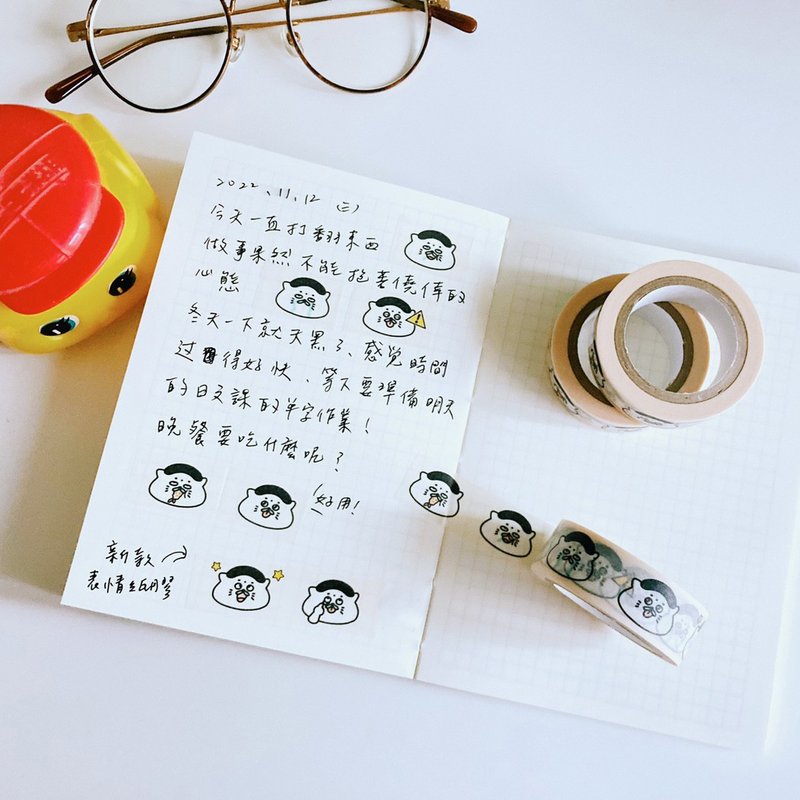 2022、11、12 (三)
今天一直打翻東西
做事果然不能抱著僥倖的
心態
冬天一下就天黑了、感覺時間
過得好快、等下要準備明天
的日文課的單字作業!
晚餐要吃什麼呢?
好用!
新款
表情紙膠